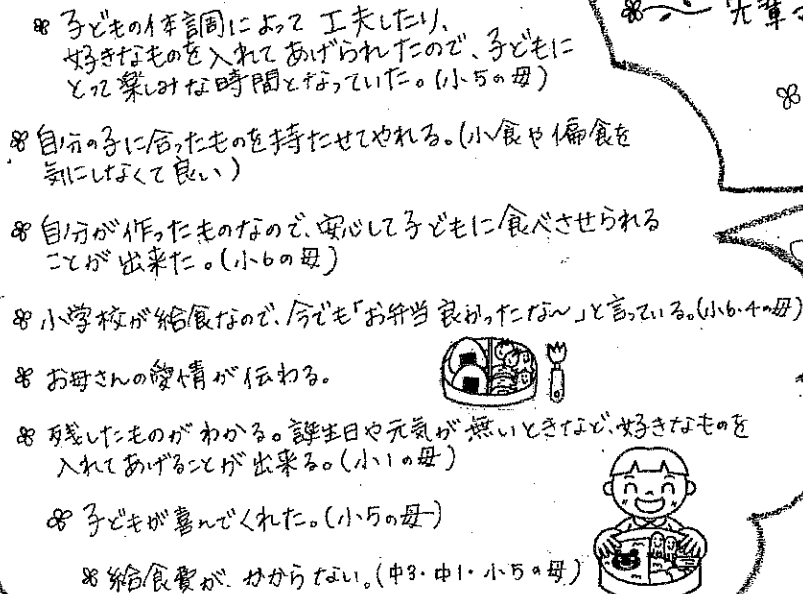 先輩
子どもの体調によって 工夫したり、
好きなものを入れてあげられたので、子どもに
とって楽しみな時間となっていた。(小5の母)
自分の子に合ったものを持たせてやれる。(小食や偏食を
気にしなくて良い)
自分が作ったものなので、安心して子どもに食べさせられる
ことが出来た。(小6の母)
小学校が給食なので、今でも「お弁当良かったな〜」と言っている。(小6・4の母)
お母さんの愛情が伝わる。
残したものがわかる。誕生日や元気が無いときなど、好きなものを
入れてあげることが出来る。(小1の母)
子どもが喜んでくれた。(小5の母)
給食費が、かからない。(中3・中1・小5の母)